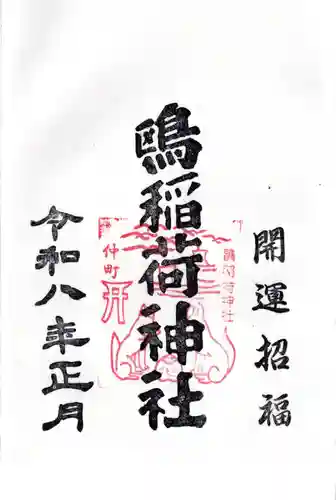 開運招福
鴎稲荷神社
令和八年正月
仲町
鴎稲荷神社